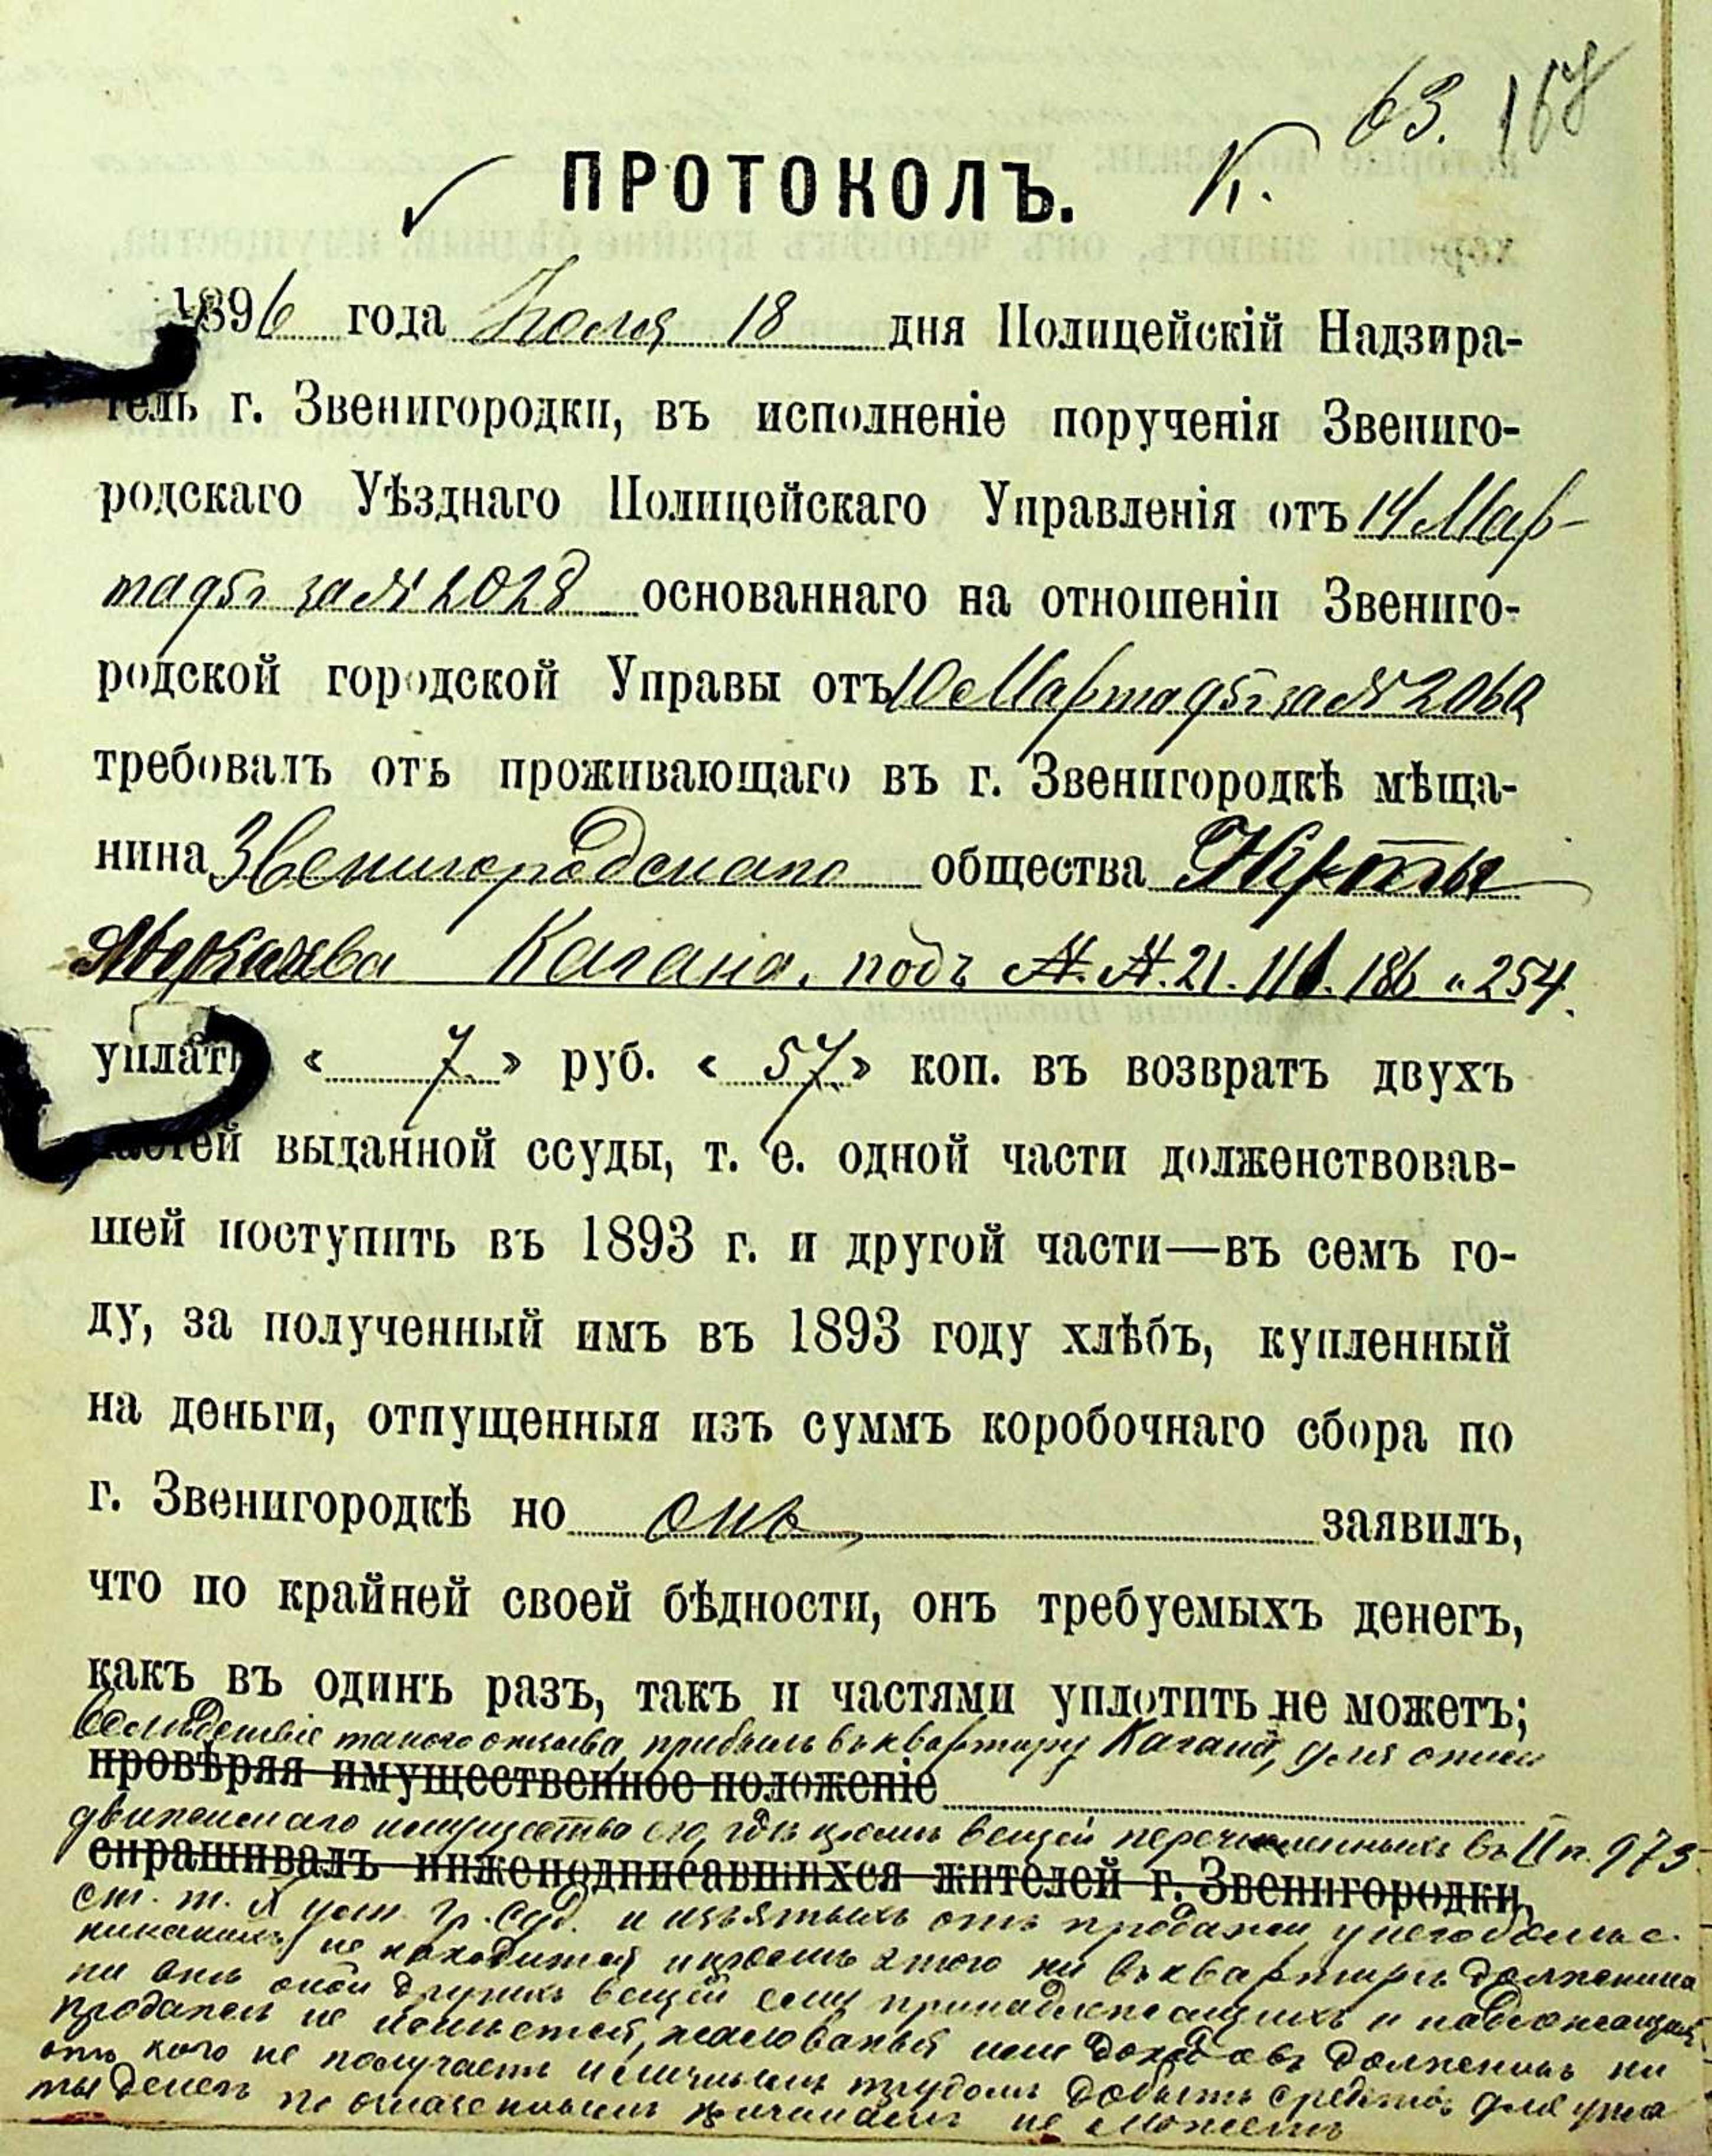 63. 167
ПРОТОКОЛЪ. К.
1896 года Іюля 18 дня Полицейскій Надзира-
тель г. Звенигородки, въ исполненіе порученія Звениго-
родскаго Уѣзднаго Полицейскаго Управленія отъ 14 Мар-
та 95 г за № 2028 основаннаго на отношеніи Звениго-
родской городской Управы отъ 10 Марта 95 г за № 2060
требовалъ отъ проживающаго въ г. Звенигородкѣ мѣща-
нина Звенигородскаго общества
Кагана, подъ №.№.21.116.186 и 254.
уплаты « 7 » руб. « 57 » коп. въ возвратъ двухъ
частей выданной ссуды, т. е. одной части долженствовав-
шей поступить въ 1893 г. и другой части—въ семъ го-
ду, за полученный имъ въ 1893 году хлѣбъ, купленный
на деньги, отпущенныя изъ суммъ коробочнаго сбора по
г. Звенигородкѣ но онъ заявилъ,
что по крайней своей бѣдности, онъ требуемыхъ денегъ,
какъ въ одинъ разъ, такъ и частями уплотить не можетъ;
Вслѣдствіе такого отзыва, прибылъ въ квартиру Кагана, для описи
провѣряя имущественное положеніе
движимаго имущества его, гдѣ кромѣ вещей перечисленныхъ въ II п. 973
спрашивалъ нижеподписавшихся жителей г. Звенигородки,
ст. т. X уст. гр. суд. и изъятыхъ отъ продажи, у него больше
никакихъ не находится и кромѣ этого ни въ квартирѣ должника
ни внѣ оной другихъ вещей ему принадлежащихъ и подлежащихъ
продажѣ не имѣется, жалованья или доходовъ должникъ ни
отъ кого не получаетъ и личнымъ трудомъ добыть средствъ для упла
ты денегъ по означеннымъ причинамъ не можетъ